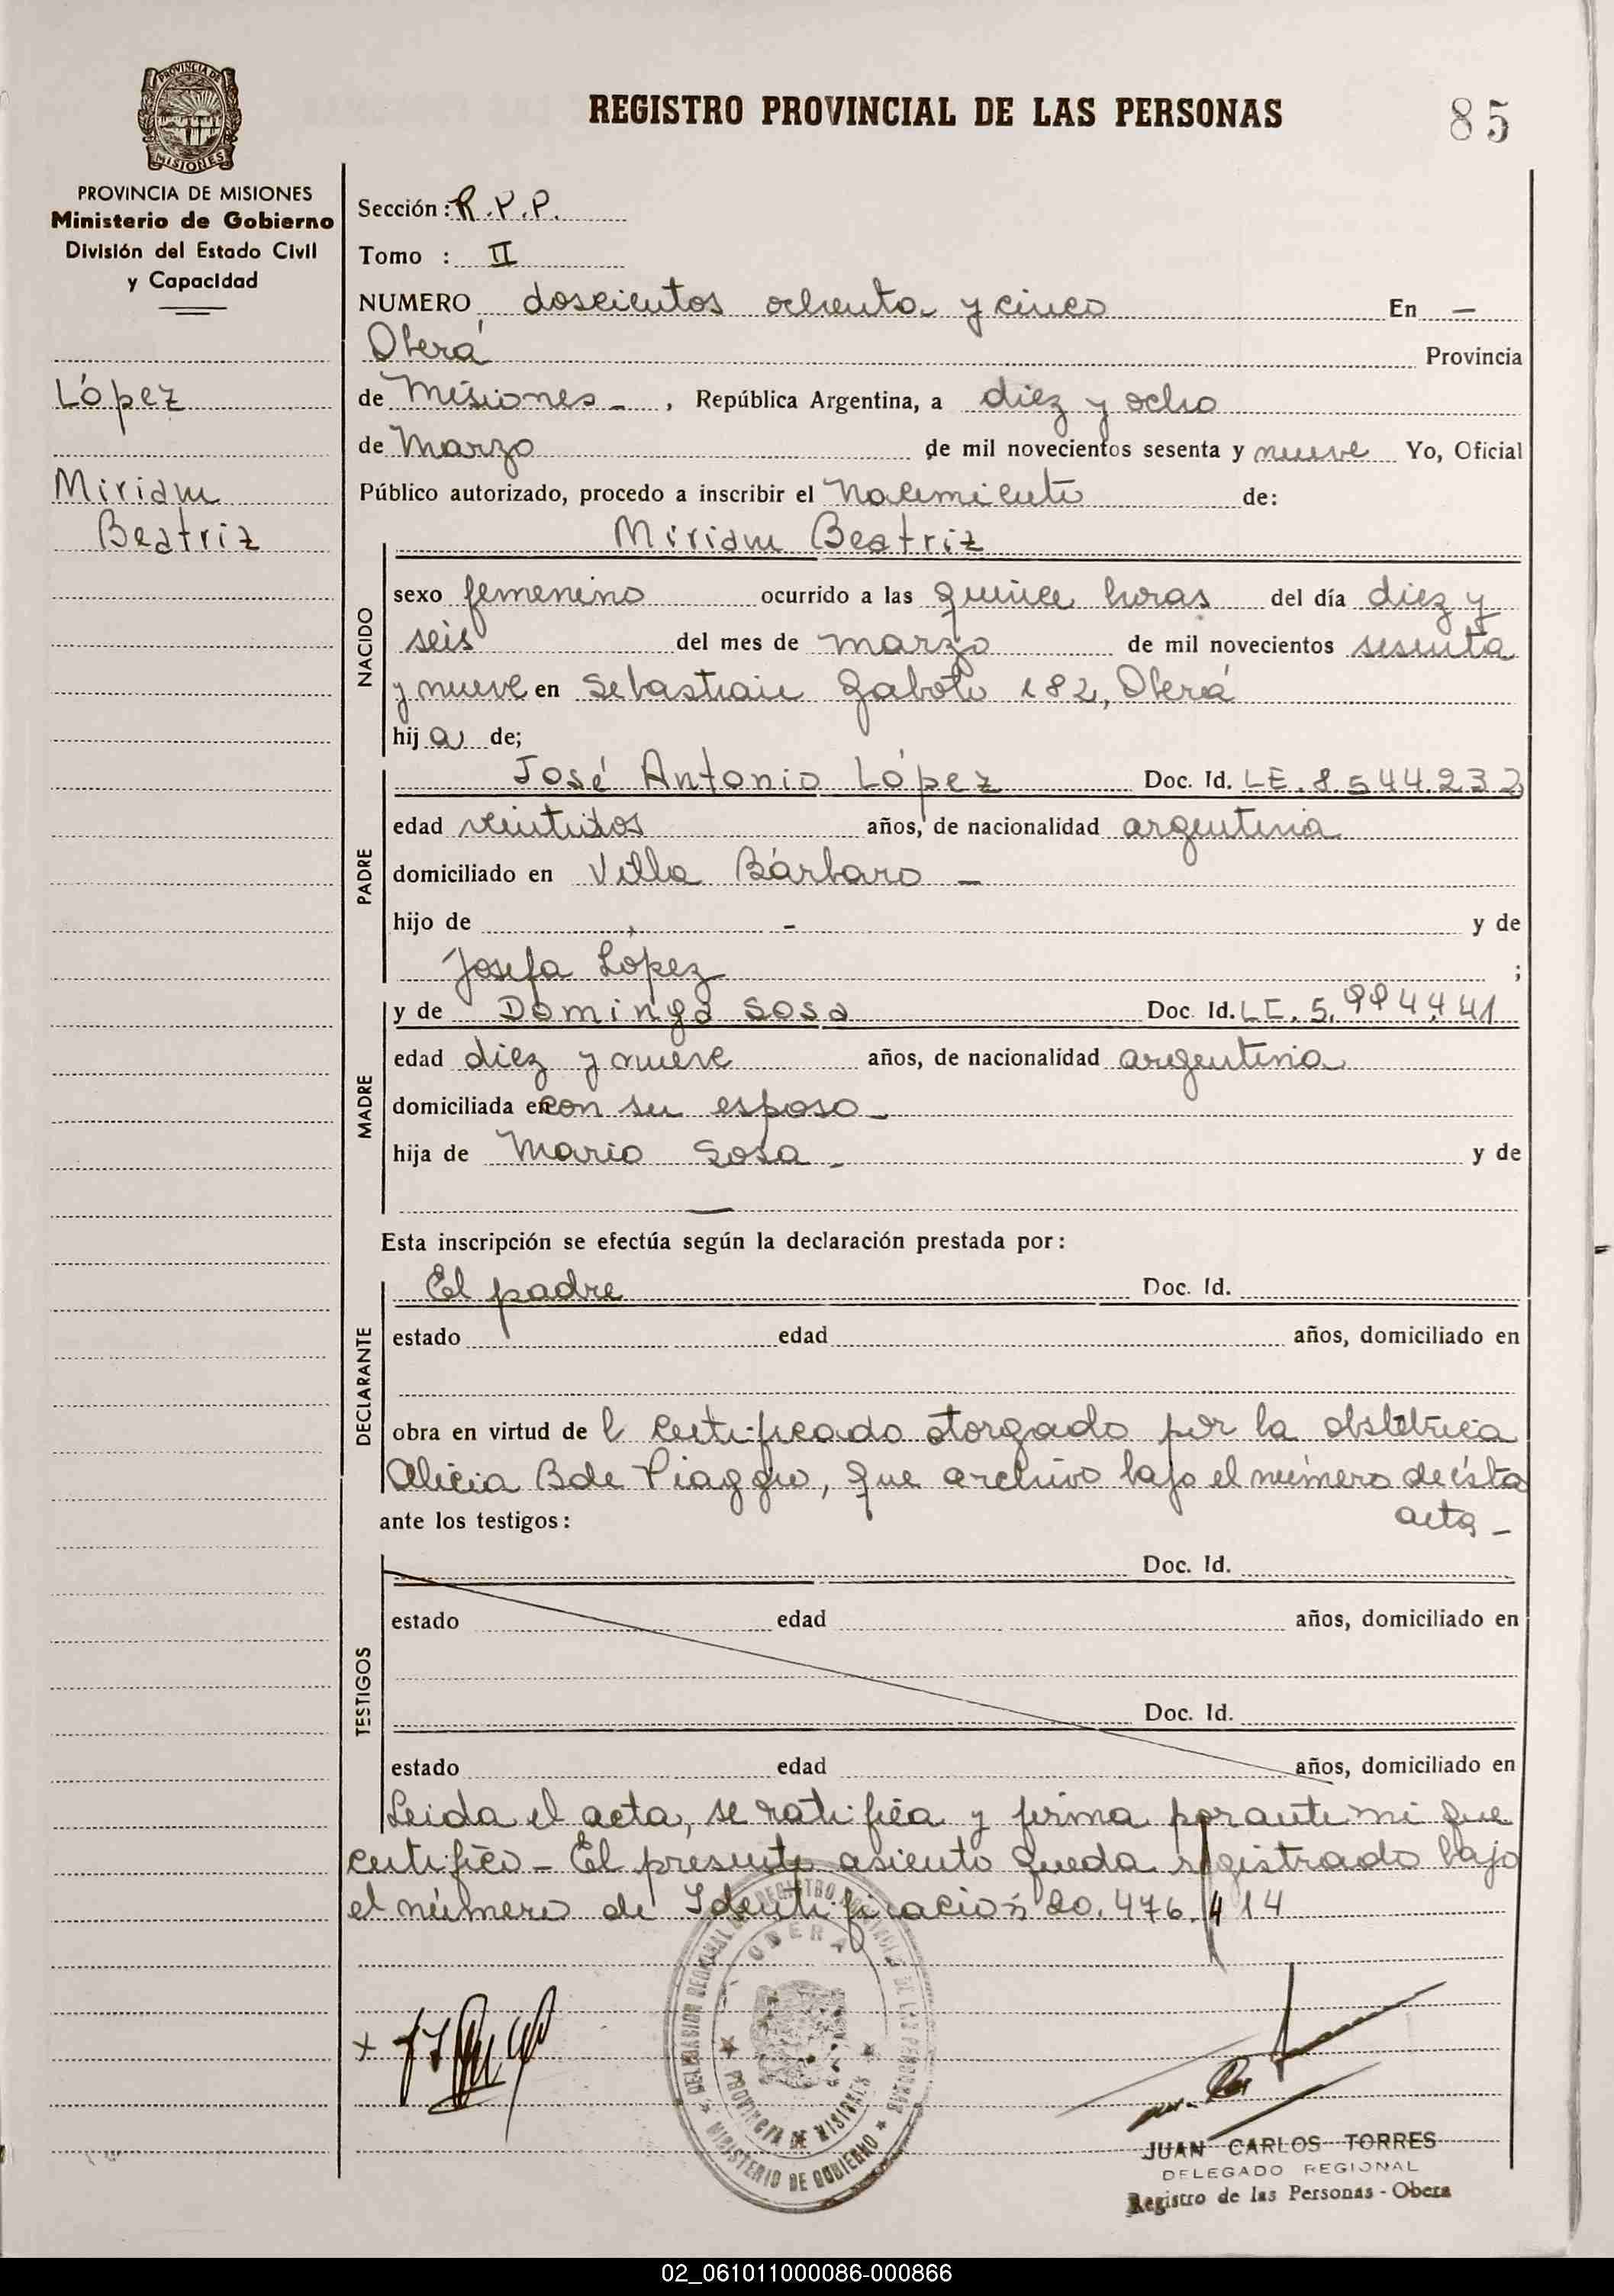 PROVINCIA DE MISIONES
REGISTRO PROVINCIAL DE LAS PERSONAS
85
PROVINCIA DE MISIONES
Ministerio de Gobierno
División del Estado Civil
y Capacidad
López
Miriam
Beatriz
Sección: R.P.P.
Tomo : II
NUMERO doscientos ochenta y cinco En —
Oberá Provincia
de Misiones - , República Argentina, a diez y ocho
de Marzo de mil novecientos sesenta y nueve Yo, Oficial
Público autorizado, procedo a inscribir el Nacimiento de:
Miriam Beatriz
NACIDO
sexo femenino ocurrido a las quince horas del día diez y
seis del mes de marzo de mil novecientos sesenta
y nueve en Sebastian Gaboto 182, Oberá
hij a de;
PADRE
José Antonio López Doc. Id. LE. 8.544.232
edad veintidos años, de nacionalidad argentina
domiciliado en Villa Bárbaro —
hijo de - y de
Josefa López ;
MADRE
y de Dominga Sosa Doc. Id. LC. 5.994.441
edad diez y nueve años, de nacionalidad argentina
domiciliada en con su esposo -
hija de Mario Sosa - y de
—
Esta inscripción se efectúa según la declaración prestada por:
DECLARANTE
El padre Doc. Id.
estado edad años, domiciliado en
obra en virtud de l certificado otorgado por la obstetrica
Alicia B de Piaggio, que archivo bajo el número de ésta
acta -
ante los testigos:
TESTIGOS
Doc. Id.
estado edad años, domiciliado en
Doc. Id.
estado edad años, domiciliado en
Leida el acta, se ratifica y firma por ante mi que
certifico - El presente asiento queda registrado bajo
el número de Identificación 20.476.414
DELEGACION REGIONAL DEL REGISTRO PROVINCIAL DE LAS PERSONAS
OBERA
PROVINCIA DE MISIONES
MINISTERIO DE GOBIERNO
JUAN CARLOS TORRES
DELEGADO REGIONAL
Registro de las Personas - Obera
02_061011000086-000866